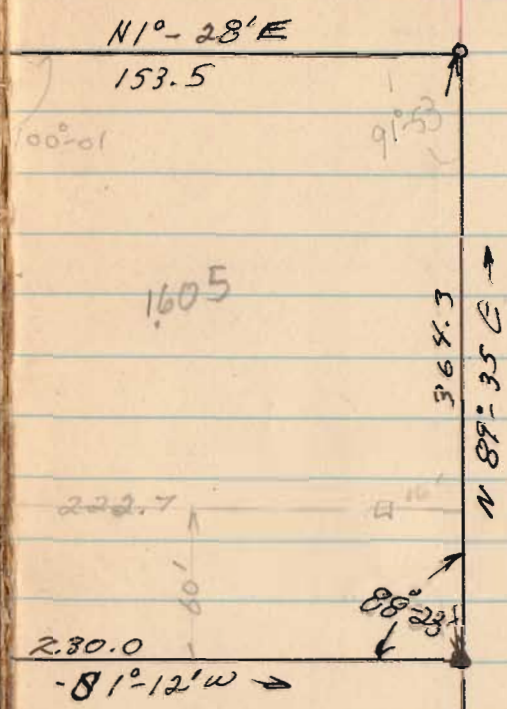 N1°-28'E
153.5
00°-01
91°-53
1605
364.3
N 89°-35 E →
222.7
16'
60'
88°-23
230.0
S 1°-12'W →